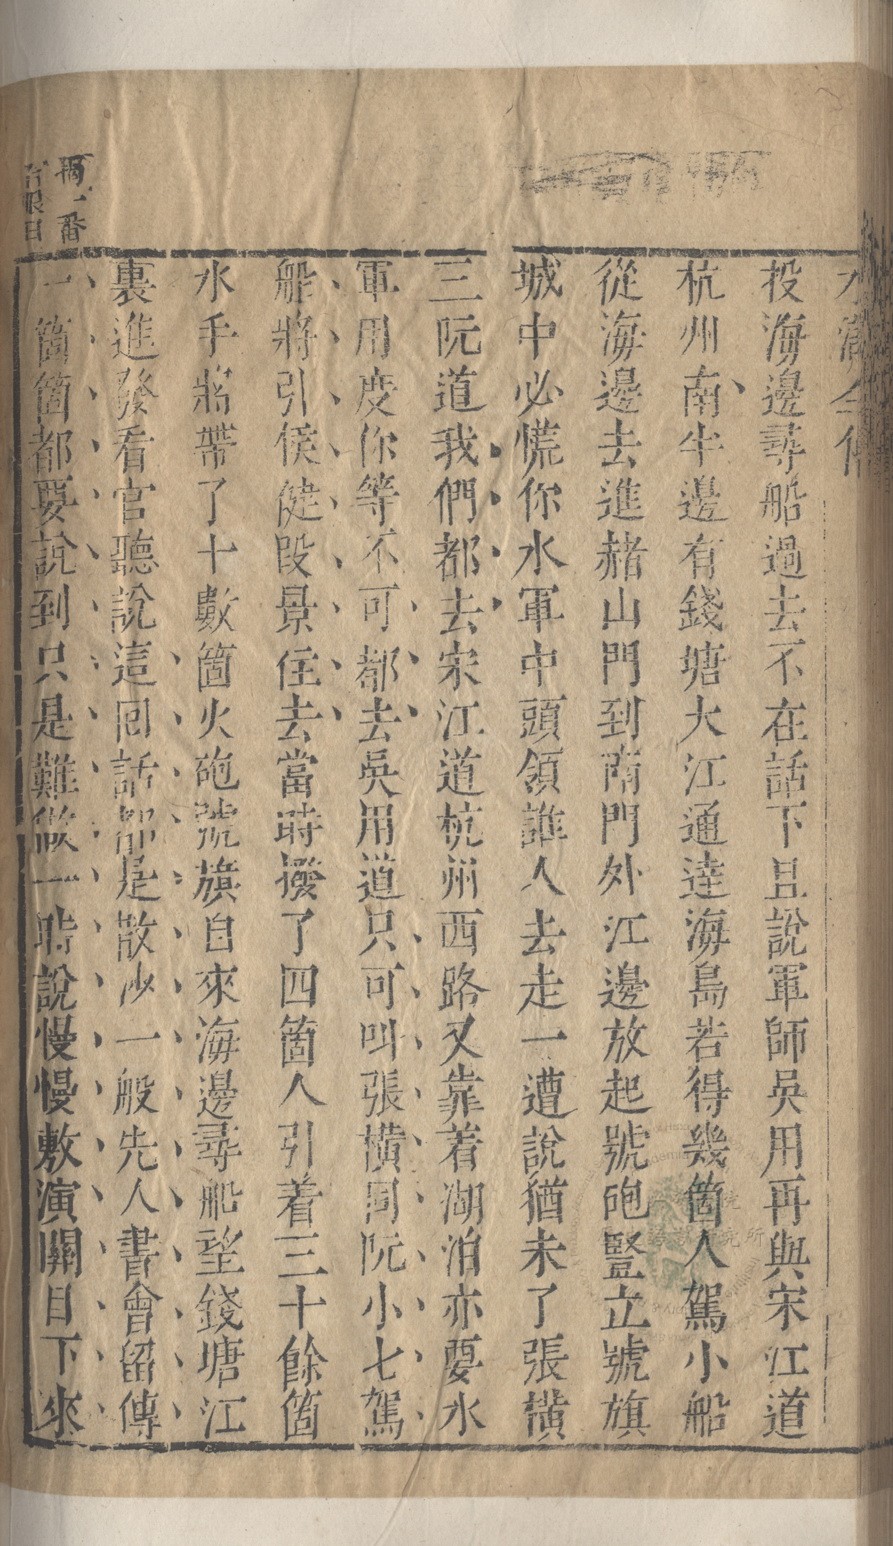 水滸全傳
投海邊尋船過去不在話下且說軍師吳用再與宋江道
杭州南半邊有錢塘大江通達海島若得幾箇人駕小船
從海邊去進赭山門到南門外江邊放起號砲豎立號旗
城中必慌你水軍中頭領誰人去走一遭說猶未了張橫
三阮道我們都去宋江道杭州西路又靠着湖泊亦要水
軍用度你等不可都去吳用道只可叫張橫同阮小七駕
船將引侯健段景住去當時撥了四箇人引着三十餘箇
水手將帶了十數箇火砲號旗自來海邊尋船望錢塘江
裏進發看官聽說這回話都是散沙一般先人書會留傳
一箇箇都要說到只是難做一時說慢慢敷演關目下來